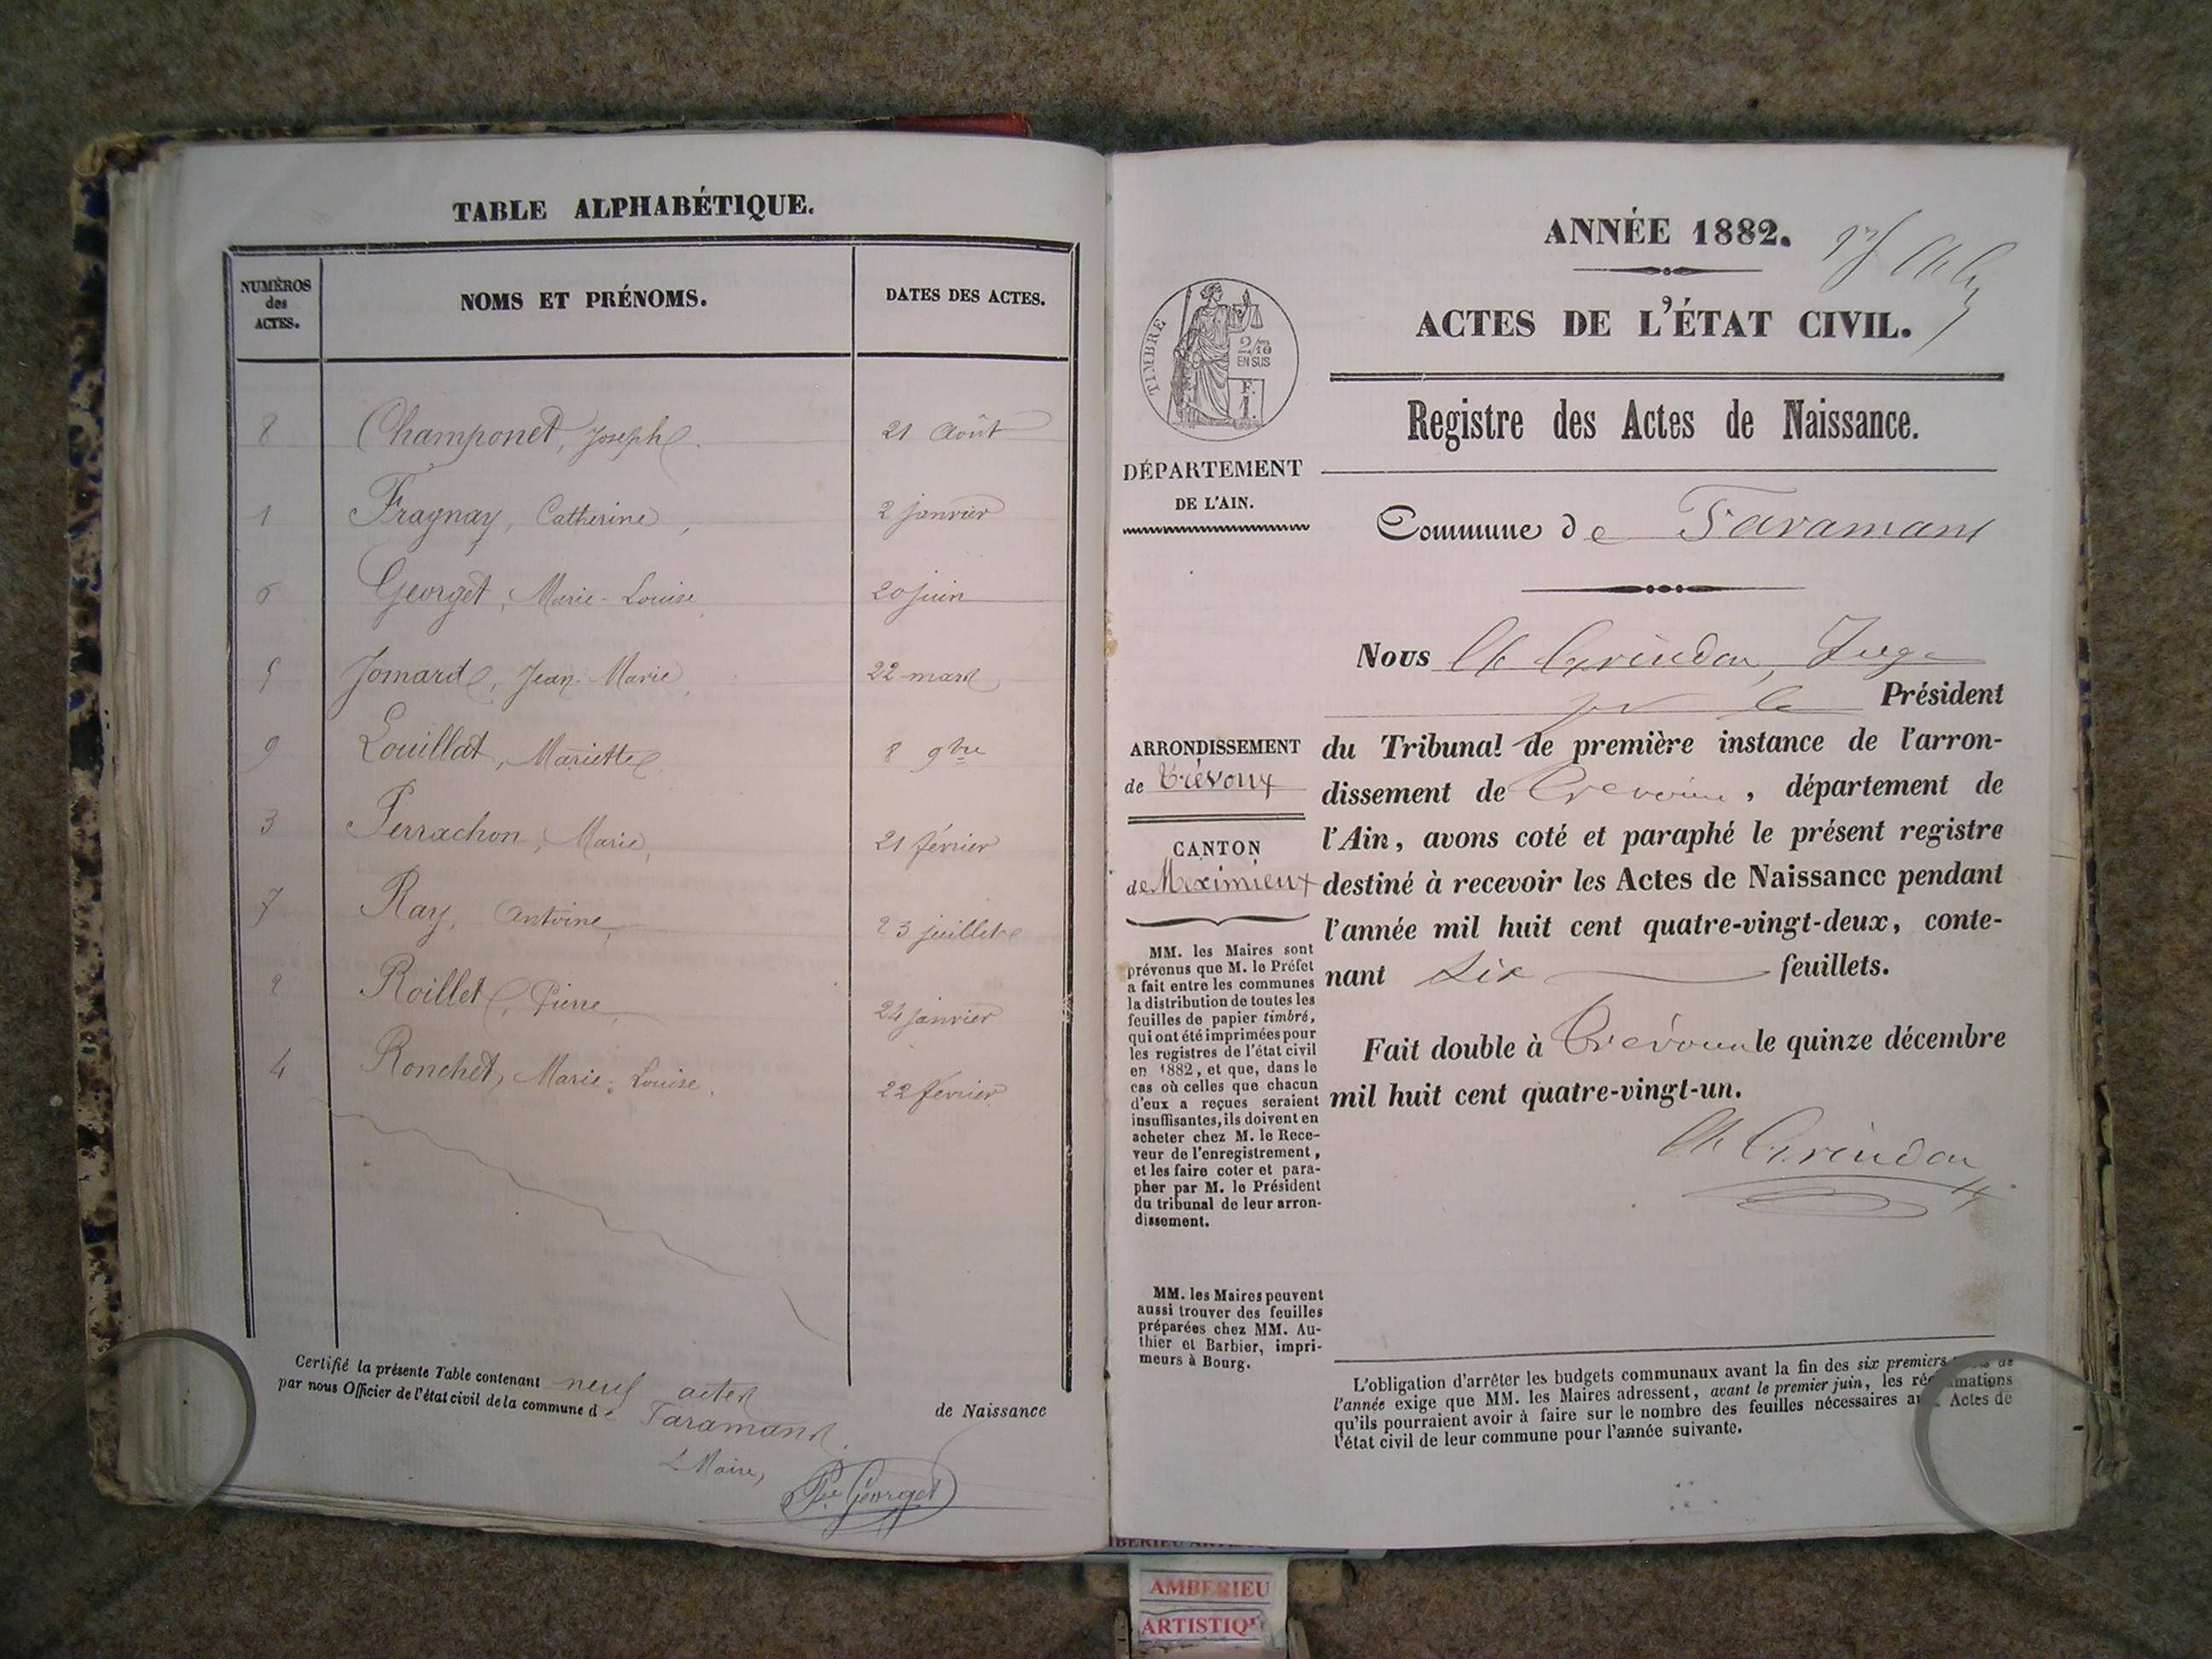 TABLE ALPHABÉTIQUE.
NUMÉROS des ACTES. NOMS ET PRÉNOMS. DATES DES ACTES.
8 Champonet, Joseph. 21 Août
1 Fragnay, Catherine, 2 janvier
6 Georget, Marie-Louise, 20 juin
5 Jomard, Jean-Marie, 22 mars
9 Louillat, Mariette, 8 9bre
3 Perrachon, Marie, 21 février
7 Ray, Antoine, 23 juillet
2 Roillet, Pierre, 24 janvier
4 Ronchet, Marie-Louise, 22 février
Certifié la présente Table contenant neuf actes de Naissance
par nous Officier de l'état civil de la commune de Faramans.
L Maire,
Georget
ANNÉE 1882.
ACTES DE L'ÉTAT CIVIL.
Registre des Actes de Naissance.
TIMBRE
2/10
EN SUS
F.
1.
DÉPARTEMENT
DE L'AIN.
ARRONDISSEMENT
de Trévoux
CANTON
de Meximieux
MM. les Maires sont
prévenus que M. le Préfet
a fait entre les communes
la distribution de toutes les
feuilles de papier timbré,
qui ont été imprimées pour
les registres de l'état civil
en 1882, et que, dans le
cas où celles que chacun
d'eux a reçues seraient
insuffisantes, ils doivent en
acheter chez M. le Rece-
veur de l'enregistrement,
et les faire coter et para-
pher par M. le Président
du tribunal de leur arron-
dissement.
MM. les Maires peuvent
aussi trouver des feuilles
préparées chez MM. Au-
thier et Barbier, impri-
meurs à Bourg.
Commune de Faramans
Nous Ch Grindon, Juge
pr le Président
du Tribunal de première instance de l'arron-
dissement de Trévoux, département de
l'Ain, avons coté et paraphé le présent registre
destiné à recevoir les Actes de Naissance pendant
l'année mil huit cent quatre-vingt-deux, conte-
nant six feuillets.
Fait double à Trévoux le quinze décembre
mil huit cent quatre-vingt-un.
Ch Grindon
L'obligation d'arrêter les budgets communaux avant la fin des six premiers mois de
l'année exige que MM. les Maires adressent, avant le premier juin, les réclamations
qu'ils pourraient avoir à faire sur le nombre des feuilles nécessaires aux Actes de
l'état civil de leur commune pour l'année suivante.
AMBERIEU
ARTISTIQU